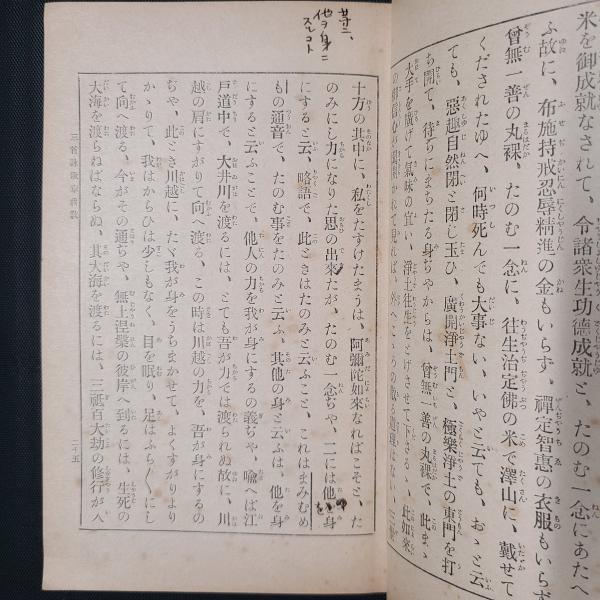 米を御成就なされて、令諸衆生功德成就と、たのむ一念にあたへ
ふ故に、布施持戒忍辱精進の金もいらず、禪定智惠の衣服もいらず
曾無一善の丸裸、たのむ一念に、往生治定佛の米で澤山に、戴せて
くだされたゆへ、何時死んでも大事ない、いやと云ても、おゝと云
ても、惡趣自然閉と閉じ玉ひ、廣開淨土門と、極樂淨土の東門を打
ち開て、待ちにまちたる身ぢやからは、曾無一善の丸裸で、此まゝ
大手を廣げて氣味の宜い、淨土往生をとげさせて下さる、此如來
苷二、
他ヲ身ニ
スルコト
十方の其中に、私をたすけたまうは、阿彌陀如來なればこそと、た
のみにし力になりた思の出來たが、たのむ一念ぢや、二には他を身
にすると云、略語で、此ときはたのみと云ふこと、これはまみむめ
もの通音で、たのむ事をたのみと云ふ、其他の身と云ふは、他を身
にすると云ふことで、他人の力を我が身にするの義ぢや、喩へば江
戸道中で、大井川を渡るには、とても吾が力では渡られぬ故に、川
越の肩にすがりて向へ渡る、この時は川越の力を、吾が身にするの
ぢや、此とき川越に、たゞ我が身をうちまかせて、よくすがりより
かゝりて、我はからひは少しもなく、目を眠り、足はふら〱にし
て向へ渡る、今がその通ぢや、無上涅槃の彼岸へ到るには、生死の
大海を渡らねばならぬ、其大海を渡るには、三祇百大劫の修行が入
二十五